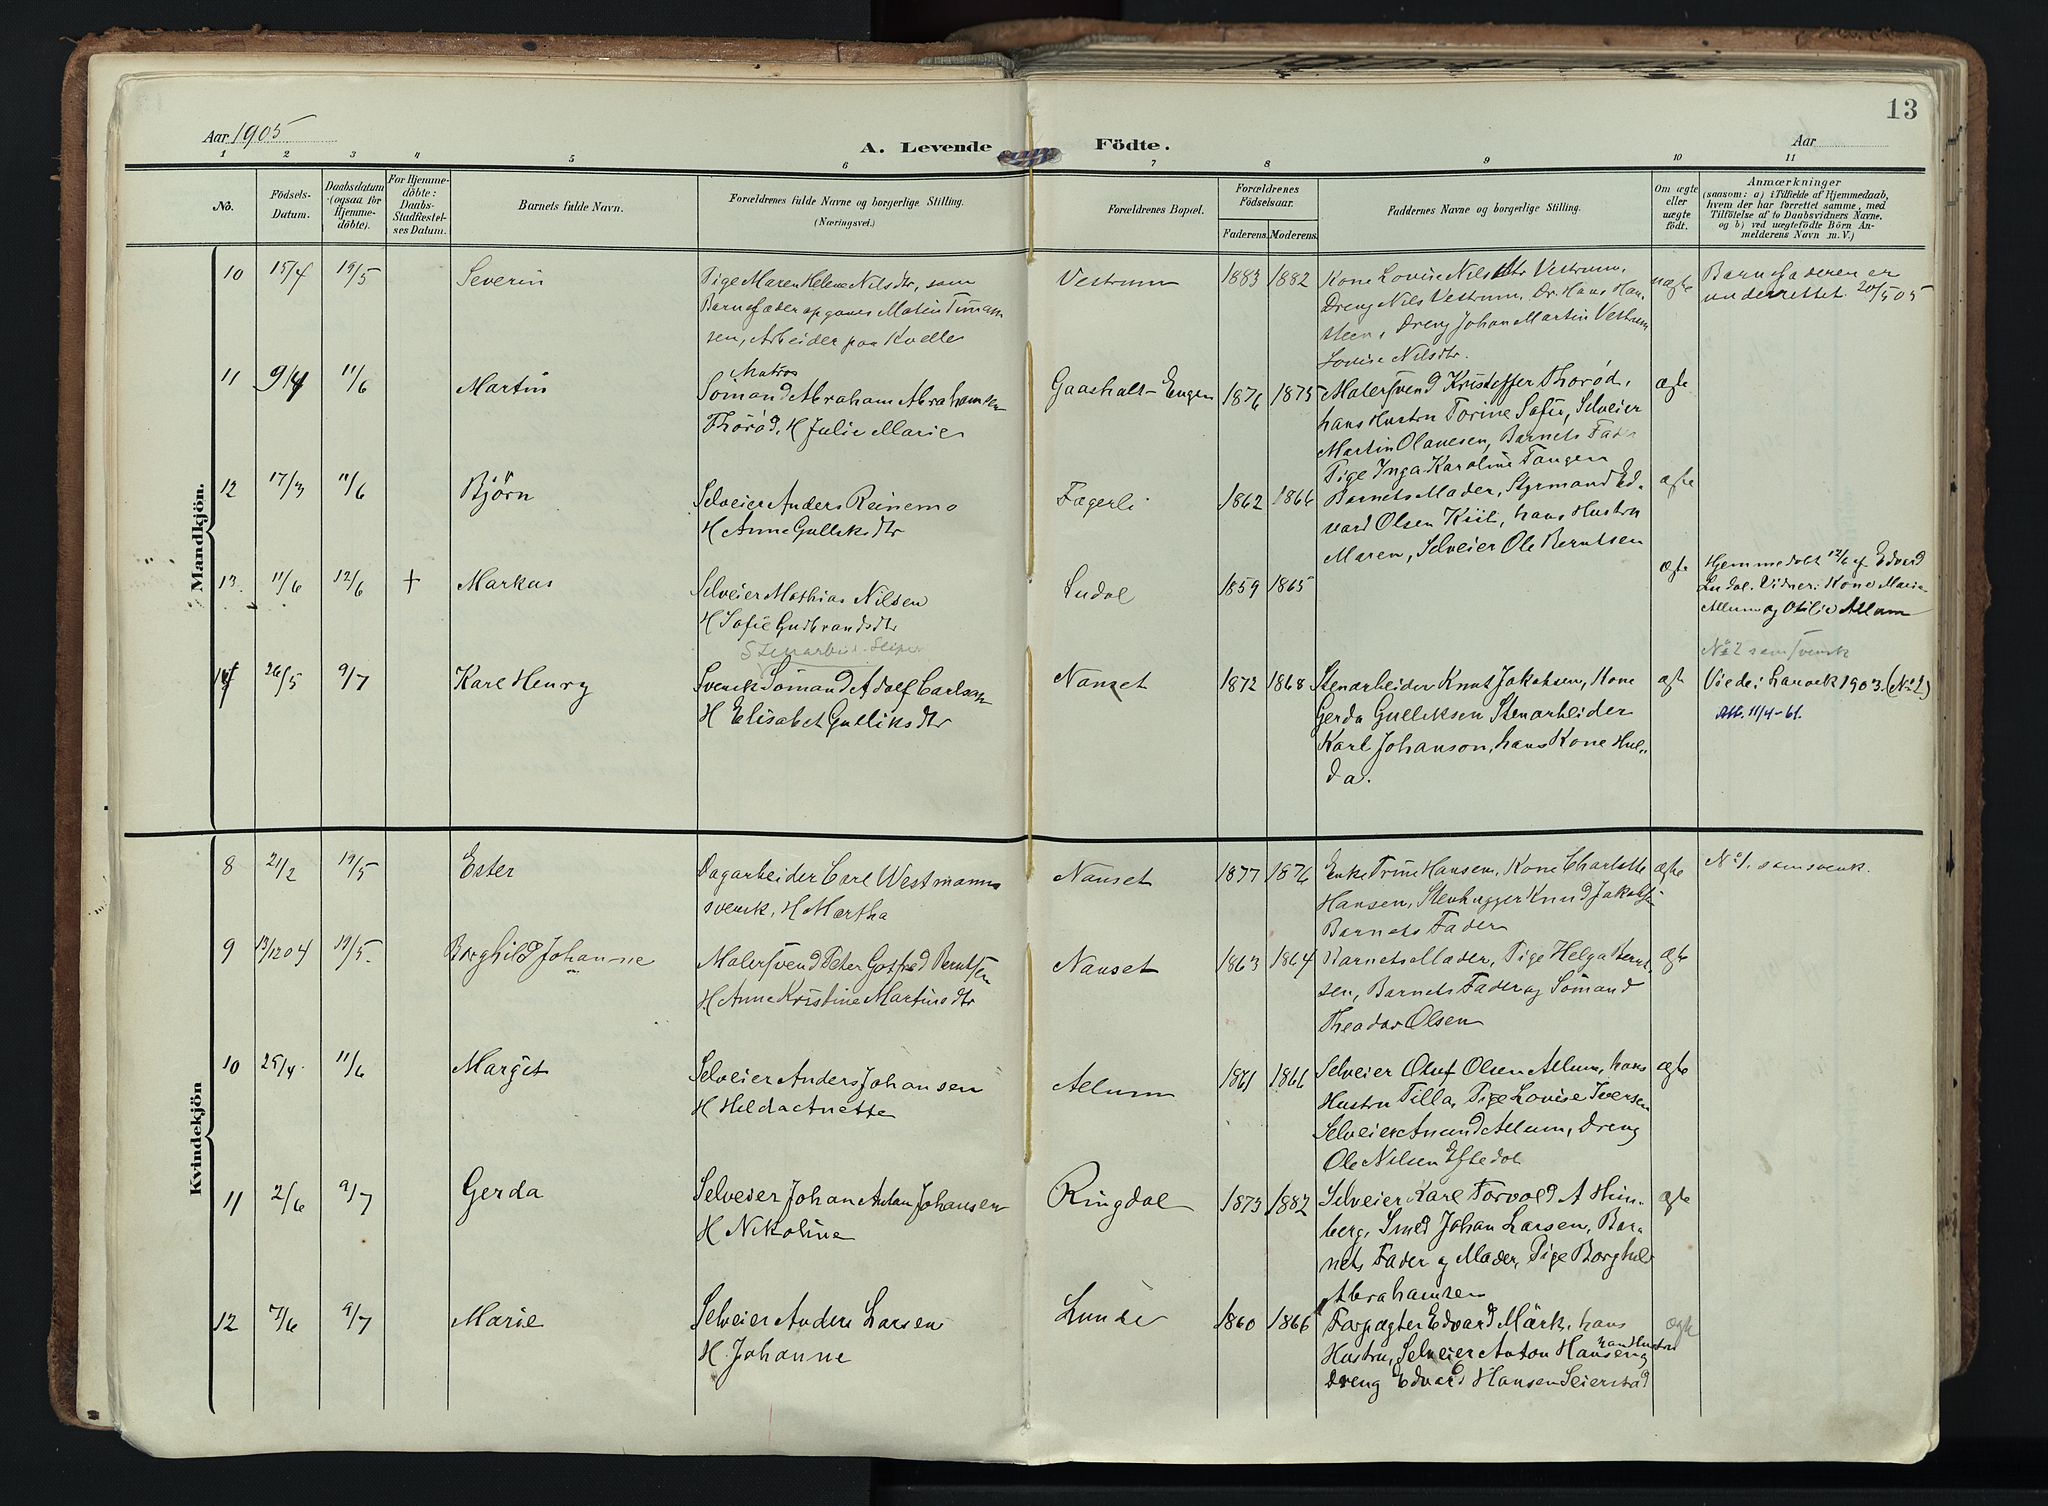 13
Aar 1905
A. Levende Födte.
Aar
1 2 3 4 5 6 7 8 9 10 11
No.
Födsels-Datum.
Daabsdatum (ogsaa for Hjemmedöbte).
For Hjemmedöbte: Daabs-Stadfestelses Datum.
Barnets fulde Navn.
Forældrenes fulde Navne og borgerlige Stilling.
(Næringsvei.)
Forældrenes Bopæl.
Forældrenes Födselsaar.
Faderens. Moderens.
Faddernes Navne og borgerlige Stilling.
Om ægte eller uægte födt.
Anmærkninger
(saasom: a) i Tilfælde af Hjemmedaab,
hvem der har forrettet samme, med
Tilföielse af to Daabsvidners Navne.
og b) ved uægtefödte Börn An-
melderens Navn m. V.)
Mandkjön.
10 15/4 19/5 Severin
Pige Maren Helene Nilsdtr, som
Barnefader opgives Matin Timan
sen, Arbeider paa Kvelle
Vestrum 1883 1882
Kone Lovise Nilsdtr Vestrum,
Dreng Nils Vestrum, Dr. Hans Han-
steen, Dreng Johan Martin Vestrum
Lovise Nilsdtr.
uægte
Barnefaderen er
underrettet 20/5 05
11 9/4 11/6 Martin
Matros
Sömand Abraham Abrahamsen
Thoröd, H Julie Marie
Gaasholt-Engen 1876 1875
Malersvend Kristoffer Thoröd,
hans Hustru Torine Sofie, Selveier
Martin Olavesen, Barnets Fader
Pige Inga Karoline Tangen
ægte
12 17/3 11/6 Björn
Selveier Anders Reinemo
H Anne Gulleksdtr
Fagerli 1862 1866
Barnets Moder, Styrmand Ed-
vard Olsen Kiil, hans Hustru
Maren, Selveier Ole Berntsen
ægte
13 11/6 12/6 + Markus
Selveier Mathias Nilsen
H Sofie Gudbrandsdtr
Ludal 1859 1865
ægte
Hjemmedöbt 12/6 af Edvard
Ludal. Vidner: Kone Maria
Allum og Otilie Allum
No 2 sem svensk
14 26/5 9/7 Karl Henry
Stenarbeid.
Svensk Sömand Adolf Carlson
H Elisabet Gulliksdtr
Nanset 1872 1868
Stenarbeider Knut Jakobsen, Kone
Gerda Gulleksen Stenarbeider
Karl Johanson, hans Kone Hul-
da.
ægte
Viede i Larvik 1903. (No 2)
Att. 11/4-61.
Kvindekjön
8 21/2 19/5 Ester
Dagarbeider Carl Westmann
svensk, H Martha
Nanset 1877 1876
Enke Trine Hansen, Kone Charlotte
Hansen, Stenhugger Knud Jakobsen
Barnets Fader
ægte
No 1. sem svensk.
9 13/12 04 19/5. Borghild Johanne
Malersvend Peter Gotfred Berntsen
H. Anne Kristine Martinsdtr
Nanset 1863 1864
Barnets Moder, Pige Helga Bernt-
sen, Barnets Fader og Sömand
Theodor Olsen
ægte
10 25/4. 11/6 Margit
Selveier Anders Johansen
H Hilda Anette
Allum 1861 1866
Selveier Oluf Olsen Allum, hans
Hustru Tilla, Pige Lovise Iversen
Selveier Anund Allum, Dreng
Ole Nilsen Eftedal
ægte
11 2/6 9/7 Gerda
Selveier Johan Anton Johansen
H Nikoline
Ringdal 1873 1882
Selveier Karl Torvald A Him-
berg, Smed Johan Larsen, Bar-
nets Fader og Moder, Pige Borghild
Abrahamsen
ægte
12 7/6 9/7 Marie
Selveier Anders Larsen
H. Johanne
Lunde 1860 1866
Forpagter Edvard Mörk, hans
Hustru, Selveier Anton Hansen og hans Hustru
Dreng Edvard Hansen Seierstad
ægte